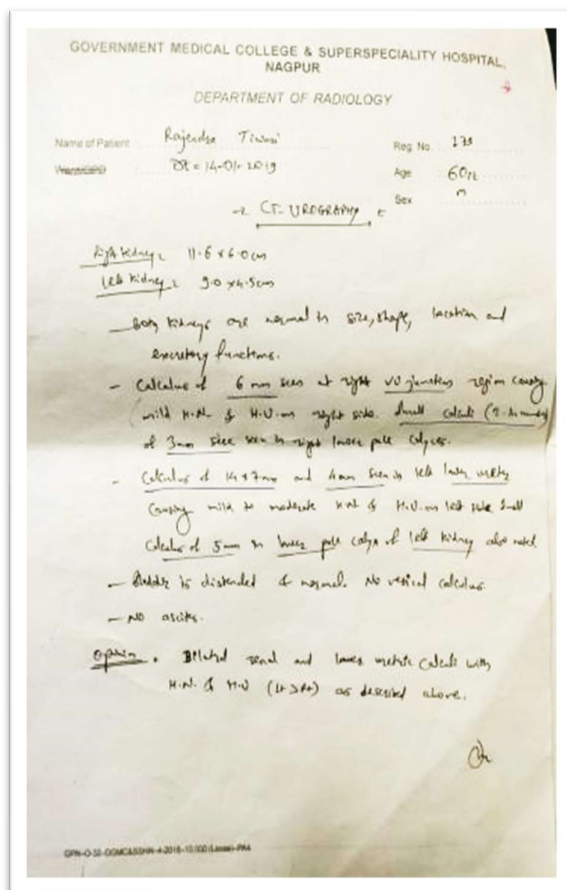 GOVERNMENT MEDICAL COLLEGE & SUPERSPECIALITY HOSPITAL,
NAGPUR
DEPARTMENT OF RADIOLOGY
Name of Patient Rajendra Tiwari Reg. No. 178
Dt = 14-01-2019 Age 60
Sex M
CT-UROGRAPHY
Right kidney 11.6 x 6.0 cm
Left kidney 9.0 x 4.5 cm
- Both kidneys are normal in size, shape, location and
excretory functions.
- Calculus of 6 mm seen at right VU junction region causing
mild H.N. & H.U. on right side. Small calculi
of 3mm size seen in right lower pole calyces.
- Calculus of 14 x 7 mm and 4 mm seen in left lower ureter
causing mild to moderate H.N. & H.U. on left side. Small
calculus of 5 mm in lower pole calyx of left kidney also noted
- Bladder is distended & normal. No vesical calculus.
- No ascites.
Opinion. Bilateral renal and lower ureteric calculi with
H.N. & H.U (Lt > Rt) as described above.